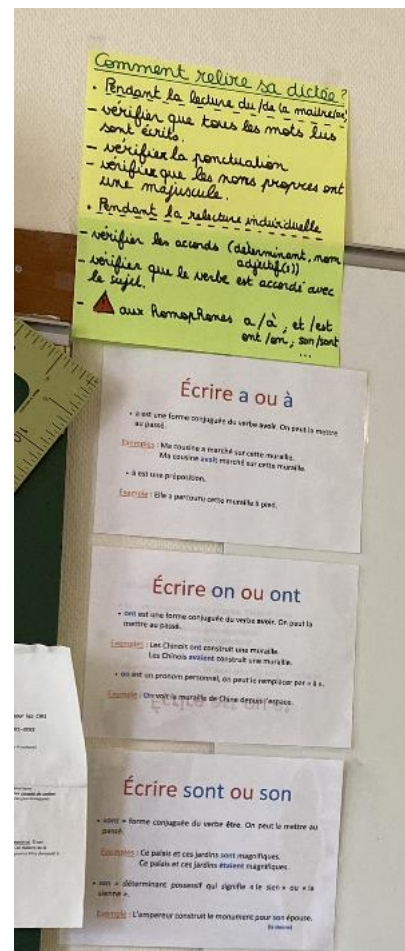 Comment relire sa dictée ?
• Pendant la lecture du/de la maître/sse
– vérifier que tous les mots lus
sont écrits.
– vérifier la ponctuation
– vérifier que les noms propres ont
une majuscule.
• Pendant la relecture individuelle
– vérifier les accords (déterminant, nom
adjectif(s))
– vérifier que le verbe est accordé avec
le sujet.
– aux homophones a/à, et/est
ont/on, son/sont
...
Écrire a ou à
• a est une forme conjuguée du verbe avoir. On peut la mettre
au passé.
Exemples : Ma cousine a marché sur cette muraille.
Ma cousine avait marché sur cette muraille.
• à est une préposition.
Exemple : Elle a parcouru cette muraille à pied.
Écrire on ou ont
• ont est une forme conjuguée du verbe avoir. On peut la
mettre au passé.
Exemples : Les Chinois ont construit une muraille.
Les Chinois avaient construit une muraille.
• on est un pronom personnel, on peut le remplacer par « il ».
Exemple : On voit la muraille de Chine depuis l'espace.
Écrire sont ou son
• sont = forme conjuguée du verbe être. On peut le mettre au
passé.
Exemples : Ce palais et ces jardins sont magnifiques.
Ce palais et ces jardins étaient magnifiques.
• son = déterminant possessif qui signifie « le sien » ou « la
sienne ».
Exemple : L'empereur construit le monument pour son épouse.
pour les CM1